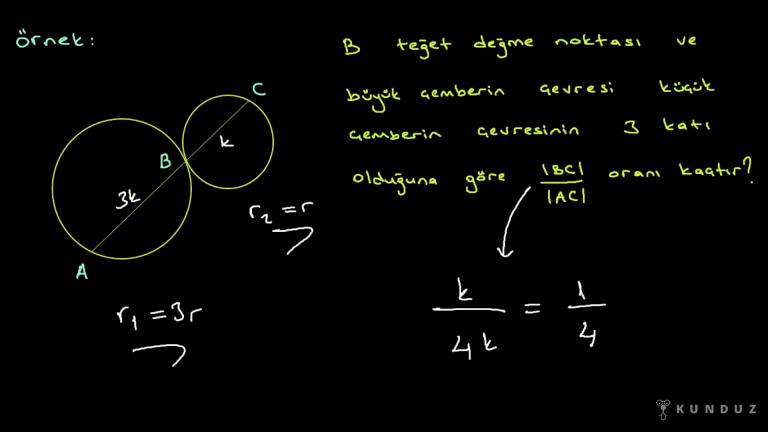 örnek:
B teğet değme noktası ve
büyük çemberin çevresi küçük
çemberin çevresinin 3 katı
olduğuna göre |BC| / |AC| oranı kaçtır?
C
B
k
3k
A
r₂ = r
r₁ = 3r
k / 4k = 1 / 4
KUNDUZ